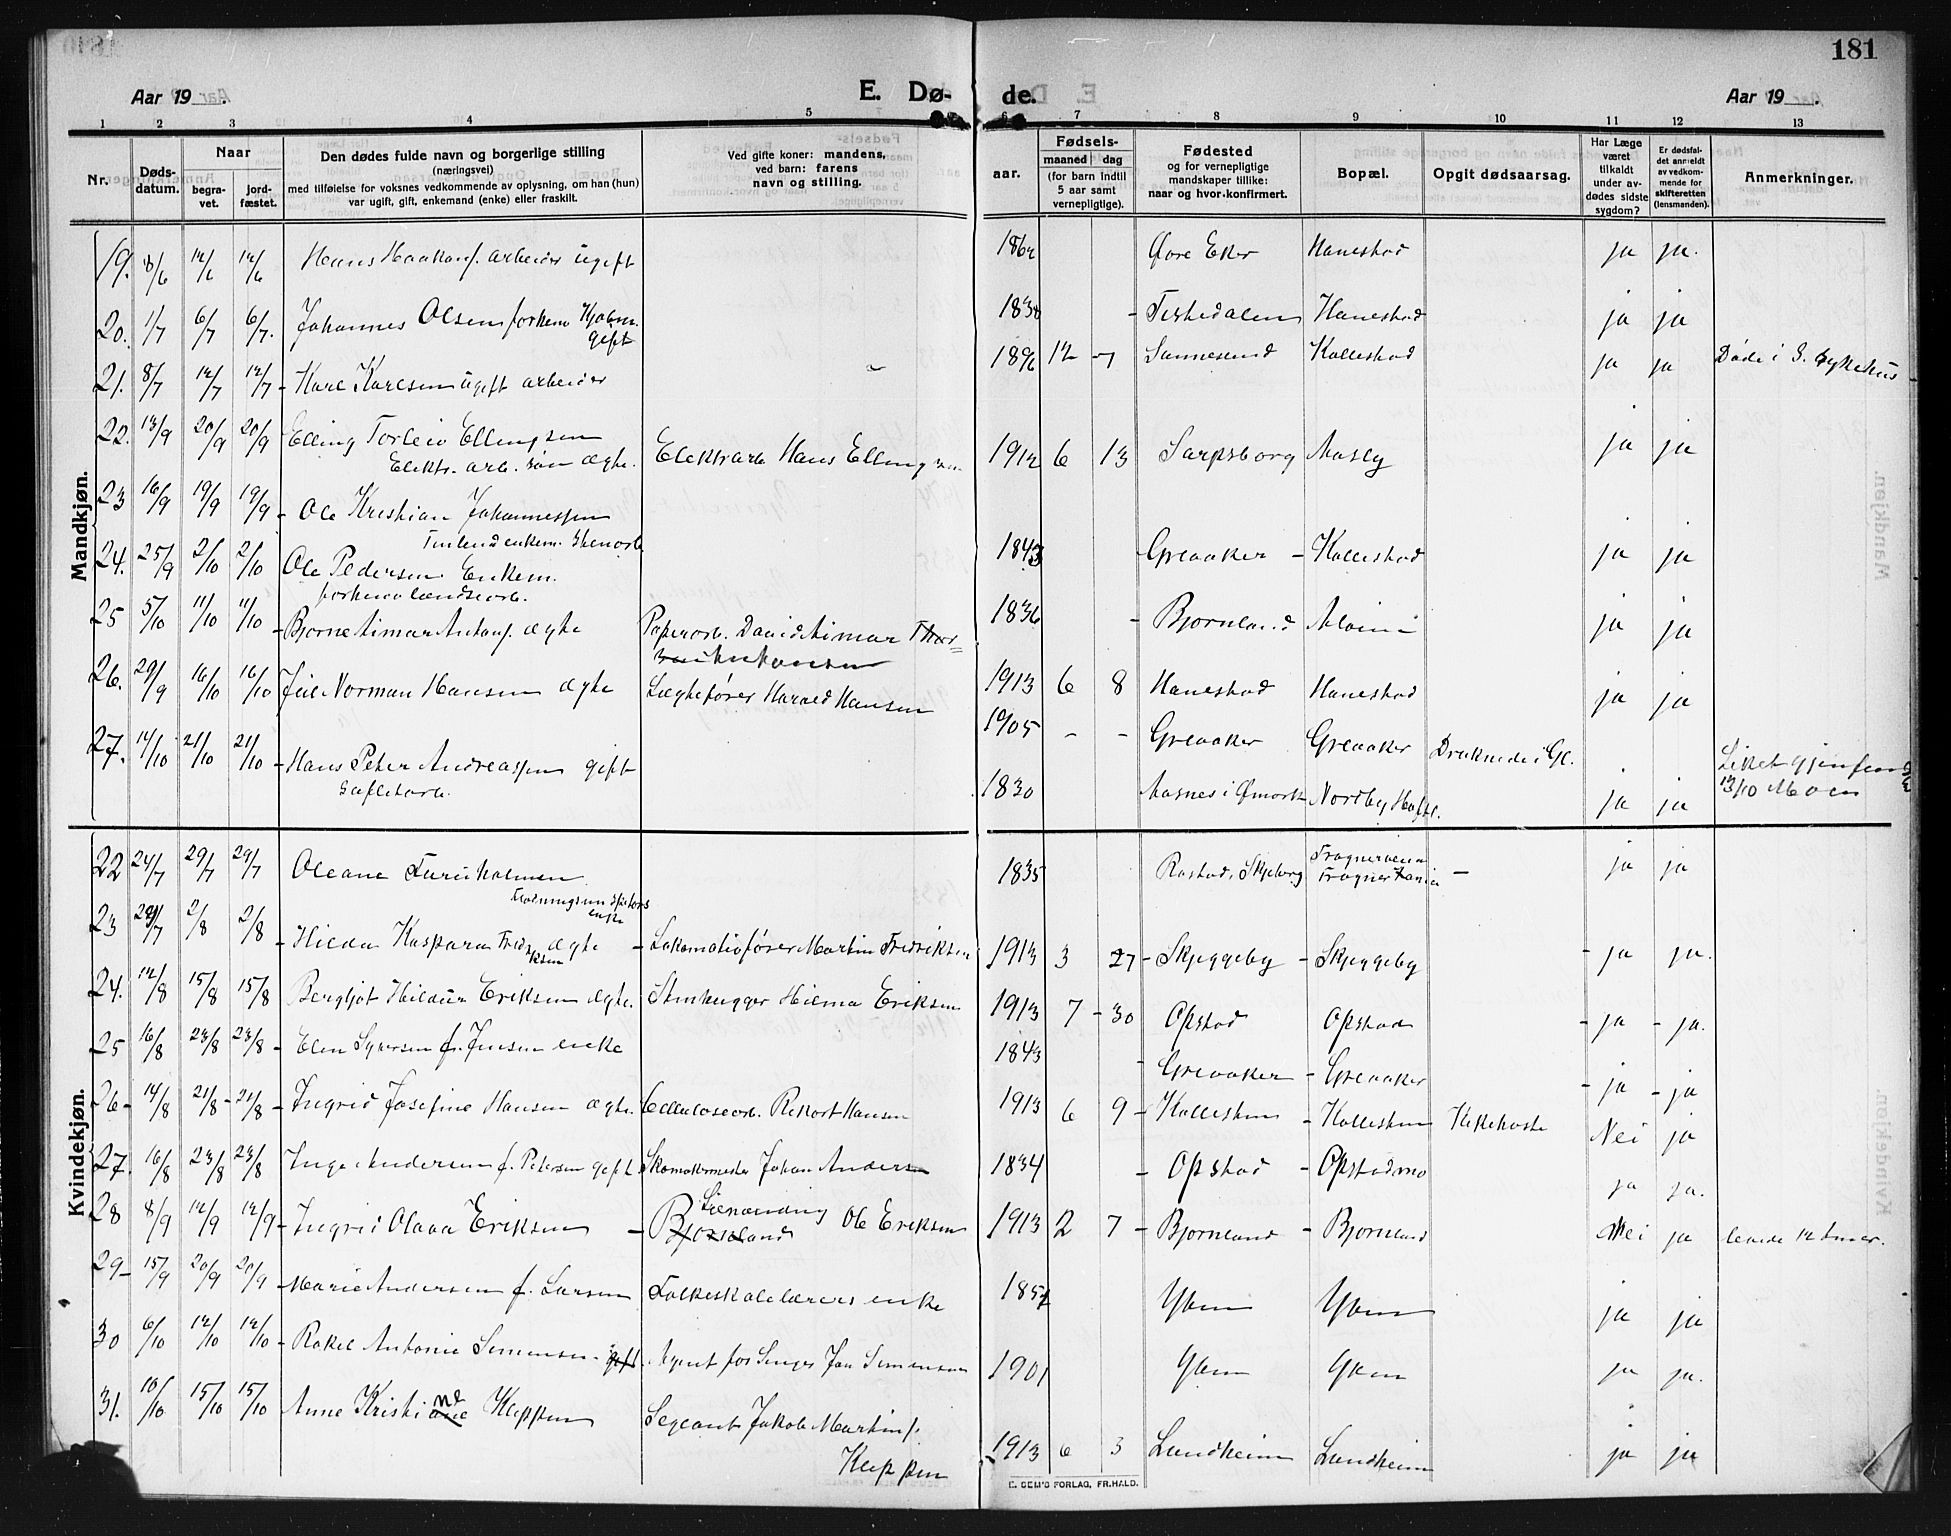 181
Aar 19
E. Dø-
de.
Aar 19
1 2 3 4 5 6 7 8 9 10 11 12 13
Nr.
Døds-
datum.
Naar
begra-
vet.
jord-
fæstet.
Den dødes fulde navn og borgerlige stilling
(næringsvei)
med tilføielse for voksnes vedkommende av oplysning, om han (hun)
var ugift, gift, enkemand (enke) eller fraskilt.
Ved gifte koner: mandens,
ved barn: farens
navn og stilling.
aar.
Fødsels-
maaned dag
(for barn indtil
5 aar samt
vernepligtige).
Fødested
og for vernepligtige
mandskaper tillike:
naar og hvor konfirmert.
Bopæl.
Opgit dødsaarsag.
Har Læge
været
tilkaldt
under av-
dødes sidste
sygdom?
Er dødsfal-
det anmeldt
av vedkom-
mende for
skifteretten
(lensmanden).
Anmerkninger.
Mandkjøn.
19. 8/6 12/6 12/6 Hans Haakons. arbeider ugift 1862 Øvre Eker Hanestad ja ja.
20. 1/7 6/7 6/7. Johannes Olsen gift 1838 - Tistedalen Hanestad ja ja
21. 8/7 12/7 12/7 - Karl Karlsen ugift arbeider 1896 12 - 7 Sannesund Kallestad ja ja Døde i S. sykehus
22. 13/9 20/9 20/9 - Elling Torleiv Ellingsen
Elektr. arb. søn ægte. Elektrarb Hans Ellingsen 1912 6 13 Sarpsborg ja ja
23 16/9 19/9 19/9 - Ole Kristian Johannessen
enkem. 1843 Greaaker - Kallestad ja ja
24. 25/9 2/10 2/10 Ole Pedersen Enkem.
1836 - Bjørnland Alvim ja ja
25 5/10 11/10 11/10 - Bjarne Aimar Antons. ægte Papirarb. David Aimar
1913 6 8 Hanestad Hanestad ja ja
26. 29/9 16/10 16/10 Norman Hansen ægte Harald Hansen 1905 - - Greaaker Greaaker Druknede i Gl. Liket gjenfun
13/10 Moen
27. 14/10 21/10 21/10 - Hans Peter Andreassen gift
1830 i Ømark Nordby ja ja
Kvindekjøn.
22 24/7 29/7 29/7 Oleane Furuholmen
enke 1835 Rastad, Skjeberg - ja ja
23 29/7 2/8 2/8 - Hilda Kaspara Fredriksen ægte - Lokomotivfører Martin Fredriksen 1913 3 27 - Skjeggeby - Skjeggeby - ja ja.
24. 12/8 15/8 15/8 Bergljot Hildur Eriksen ægte. Stenhugger Hilmar Eriksen 1913 7 - 30 Opstad Opstad - ja - ja.
25 16/8 23/8 23/8 - Elen Syversen f. Jensen enke 1843 - Greaaker - Greaaker - ja - ja
26 - 14/8 21/8 - 21/8 - Ingrid Josefine Hansen ægte. Celluloseorb. Rikart Hansen 1913 6 9 - Kallestun - Kallestun Kikhoste Nei ja
27. 16/8 23/8 23/8 - Inger Andersen f. Petersen gift Skomakermester Johan Andersen 1834 - Opstad - Opstadmo ja ja.
28 8/9 12/9 12/9 - Ingrid Olava Eriksen - Bjørnland Ole Eriksen 1913 2 7 - Bjørnland - Bjørnland Nei ja levede 12 timer.
29 - 15/9 20/9 20/9 - Marie Andersen f. Larsen Folkeskolelærers enke 1852 Yven Yven ja ja
30 6/10 12/10 12/10 - Rakel Antonie Simensen gift. Agent for Singer Jan Simensen 1901 Yven Yven ja ja.
31. 10/10 15/10 15/10 Anne Kristiane Kleppen Sergeant Jakob Martins.
Kleppen 1913 6 3 Lundheim Lundheim ja ja
E. SEM'S FORLAG, FR.HALD.